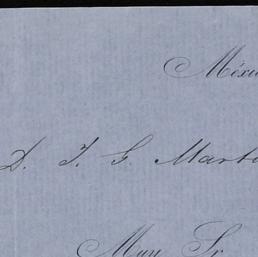 Méxi
D. J. G. Marti
Muy Sr.